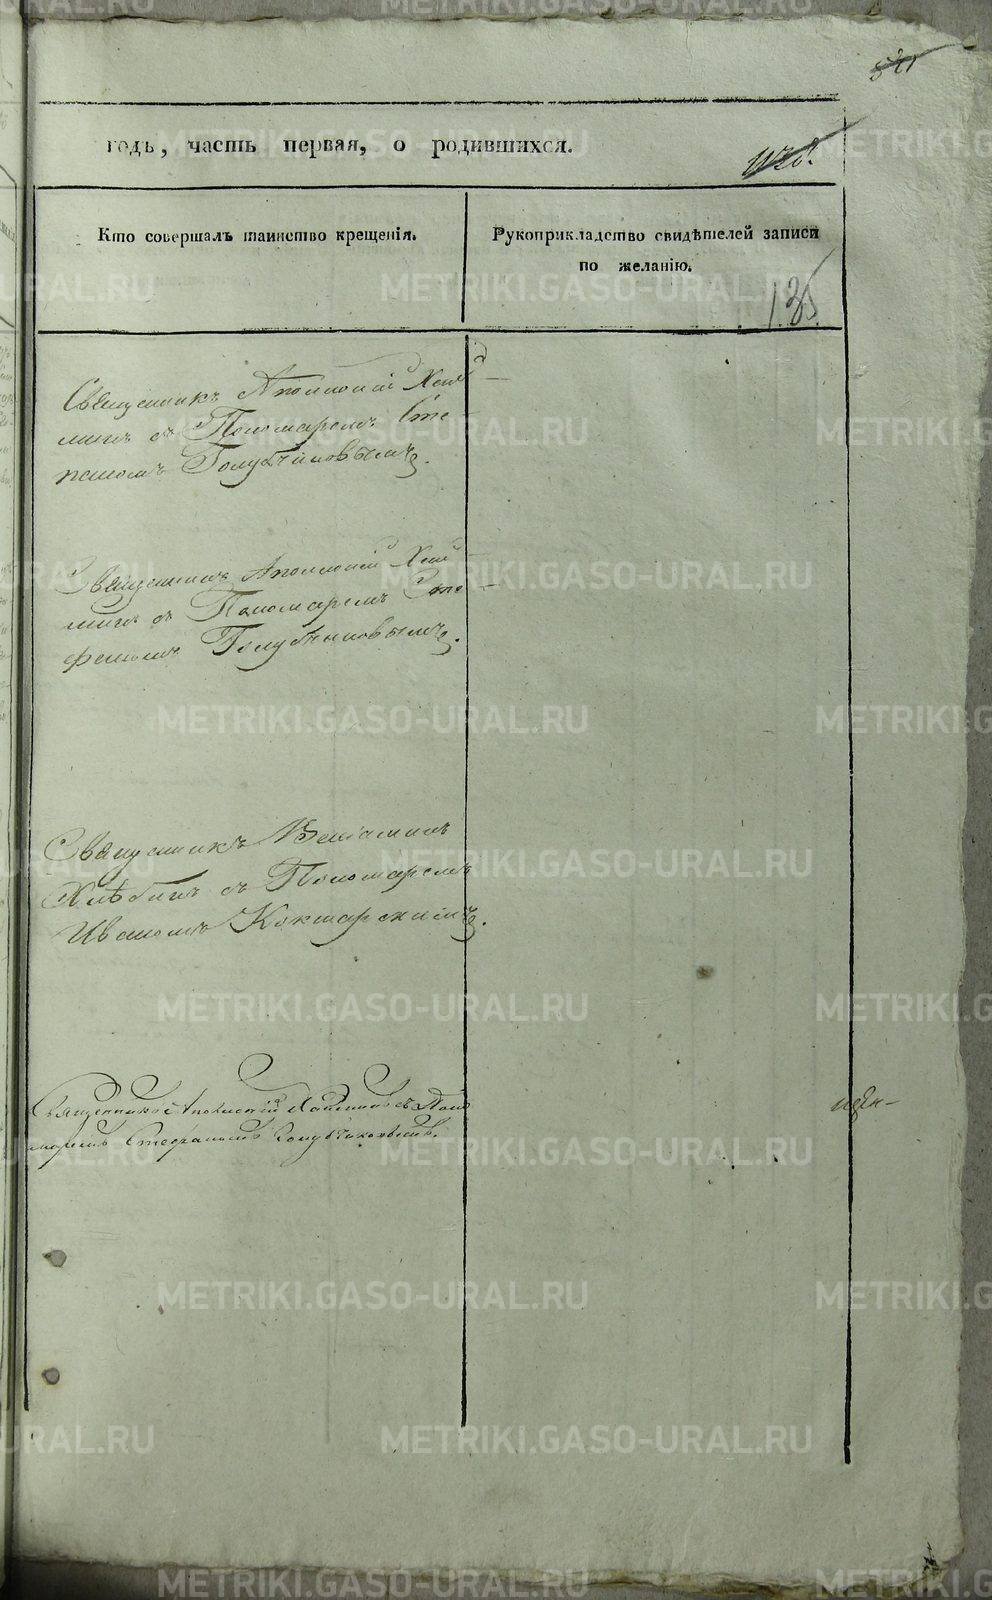 годъ, часть первая, о родившихся.
Кто совершалъ таинство крещенія.
Рукоприкладство свидѣтелей записи
по желанію.
135
Священникъ Аполлоній
съ Пономаремъ Сте
паномъ Голубчиковымъ.
Священникъ Аполлоній
съ Пономаремъ Сте
фаномъ Голубчиковымъ.
Священникъ Веніаминъ
Хлѣбинъ съ Пономаремъ
Иваномъ Кокшарскимъ.
Священникъ Аполлоній съ Поно
маремъ Стефаномъ Голубчиковымъ.
METRIKI.GASO-URAL.RU